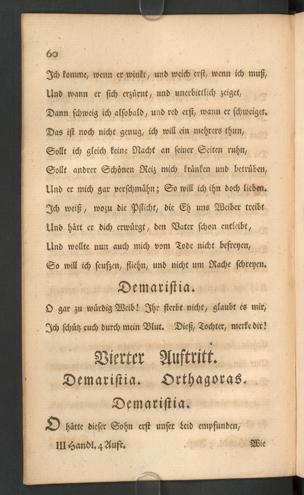 60
Ich komme, wenn er winkt, und weich erst, wenn ich muß,
Und wann er sich erzürnt, und unerbittlich zeiget,
Dann schweig ich alsobald, und red erst, wann er schweiget.
Das ist noch nicht genug, ich will ein mehrers thun,
Sollt ich gleich keine Nacht an seiner Seiten ruhn,
Sollt andrer Schönen Reiz mich kränken und betrüben,
Und er mich gar verschmähn; So will ich ihn doch lieben.
Ich weiß, wozu die Pflicht, die Eh uns Weiber treibt
Und hätt er dich erwürgt, den Vater schon entleibt,
Und wollte nun auch mich vom Tode nicht befreyen,
So will ich seufzen, fliehn, und nicht um Rache schreyen.
Demaristia.
O gar zu würdig Weib! Ihr sterbt nicht, glaubt es mir,
Ich schütz euch durch mein Blut. Dieß, Tochter, merke dir!
Vierter Auftritt.
Demaristia. Orthagoras.
Demaristia.
O hätte dieser Sohn erst unser Leid empfunden,
III Handl. 4 Auft. Wie